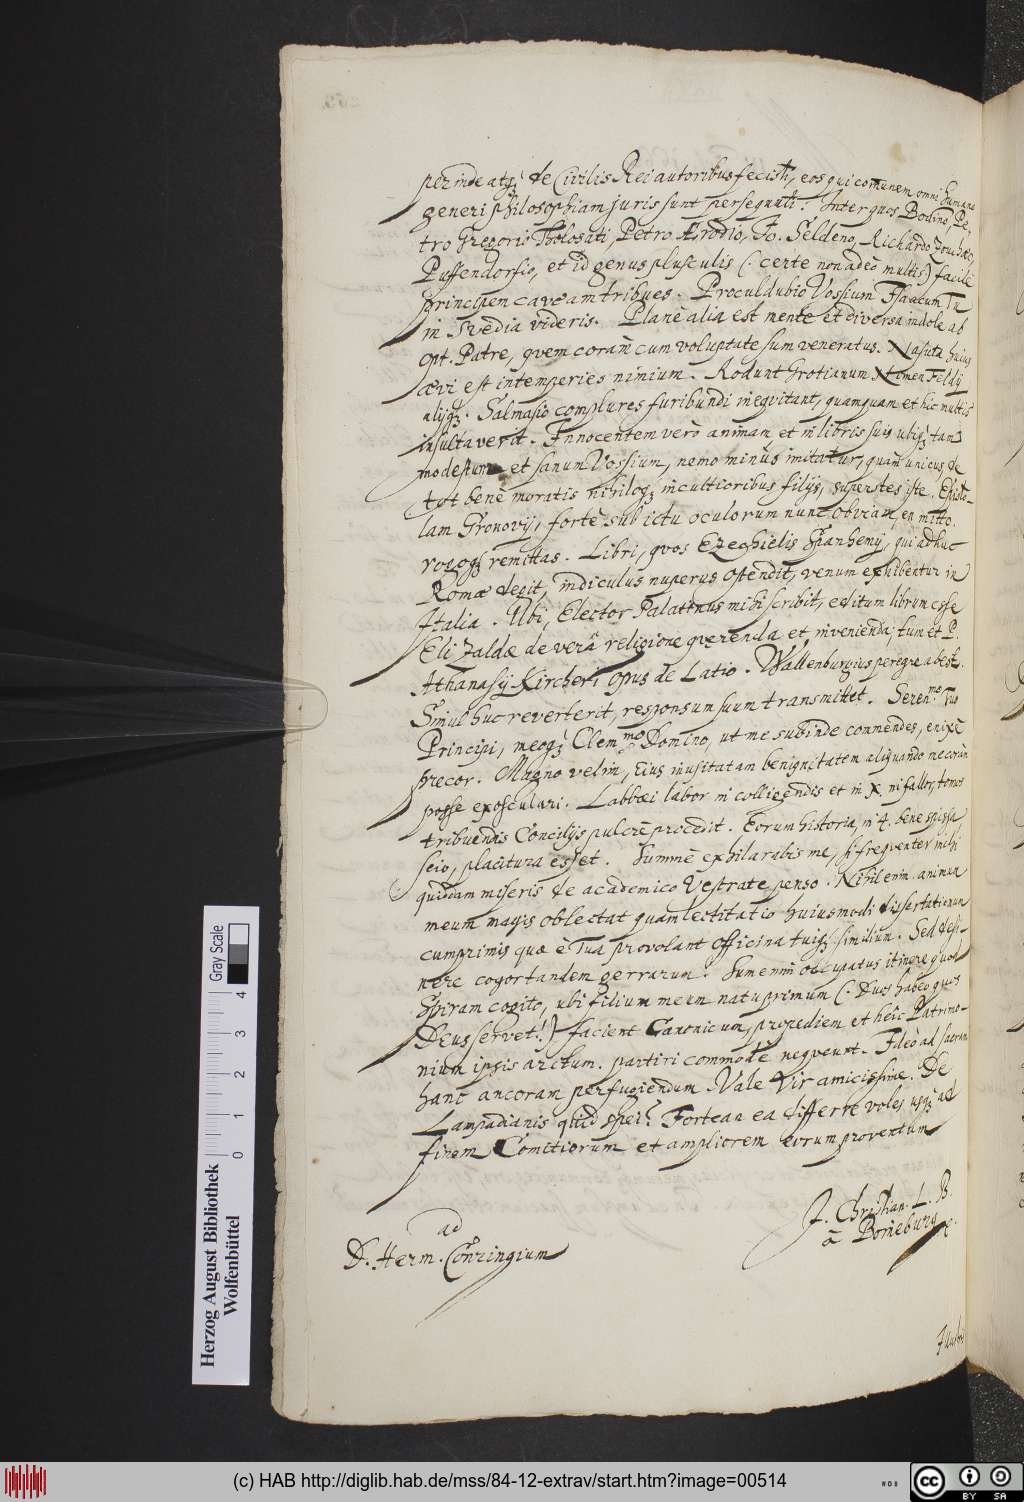 perinde atq; de Civilis Rei autoribus fecisti, eos qui comunem omni humano
generi philosophiam juris sunt persequuti: Inter quos Bodino, Pe-
tro Gregorio Tholosati, Petro Ærodio, Jo. Seldeno, Richardo Zoucheo,
Puffendorfio, et id genus plusculis (: certe non adeò multis) facile
principem caveam tribues. Proculdubio Vossium Isaacum Tu
in Svedia videris. Planè alia est mente et diversa indole ab
opt. Patre, quem coràm cum voluptate sum veneratus. Nasuta huius
ævi est intemperies nimium. Rodunt Grotianum Nomen Feldij
alijq;. Salmasio complures furibundi inequitant, quamquam et hic multis
insultaverit. Innocentem verò animam, et in libris suis ubiq; tam
modestum et sanum Vossium, nemo minùs imitatur, quam unicus, de
tot benè moratis nihiloq; incultioribus filijs, superstes iste. Episto-
lam Gronovij, fortè sub ictu oculorum nunc obviam, en mitto.
rogoq; remittas. Libri, quos Ezechielis Spanhemij, qui adhuc
Romæ degit, indiculus nuperus ostendit, venum exhibentur in
Italia. Ubi, Elector Palatinus mihi scribit, editum librum esse
Elizaldæ de verâ religione querenda et invenienda; tum et P.
Athanasij Kircheri opus de Latio. Wallenburgius peregre abest.
Simul huc reverterit, responsum suum transmittet. Seren.mo Tuo
Principi, meoq; Clem.mo Domino, ut me subinde commendes, enixè
precor. Magno velim, Eius inusitatam benignitatem aliquando me coràm
posse exosculari. Labbæi labor in colligendis et in X. ni fallor, tomos
tribuendis Concilijs pulcrè procedit. Eorum historia, in 4. bene spissa
scio, placitura esset. Summè exhilarabis me, si frequenter mihi
quiddam miseris de academico Vestrate penso. Nihil enim animum
meum magis oblectat quam lectitatio huiusmodi dissertationum
cumprimis quæ è Tua provolant officina tuiq; similium. Sed desi-
nere cogor tandem gerrarum. Sum enim occupatus itinere quod
Spiram cogito, ubi filium meum natu primum (: Duos habeo quos
Deus servet!) facient Canonicum, propediem, et heic Patrimo-
nium ipsis arctum. partiri commodè nequeunt. Ideò ad sacram
hanc ancoram perfugiendum. Vale Vir amicissime. De
Lampadianis quid spei? Fortean ea differre voles usq; ad
finem Comitiorum et ampliorem eorum proventum
J. Christian. L. B.
à Boineburg
ad
D. Herm. Conringium
Gray Scale
0 1 2 3 4
Herzog August Bibliothek
Wolfenbüttel
(c) HAB http://diglib.hab.de/mss/84-12-extrav/start.htm?image=00514
cc
BY SA